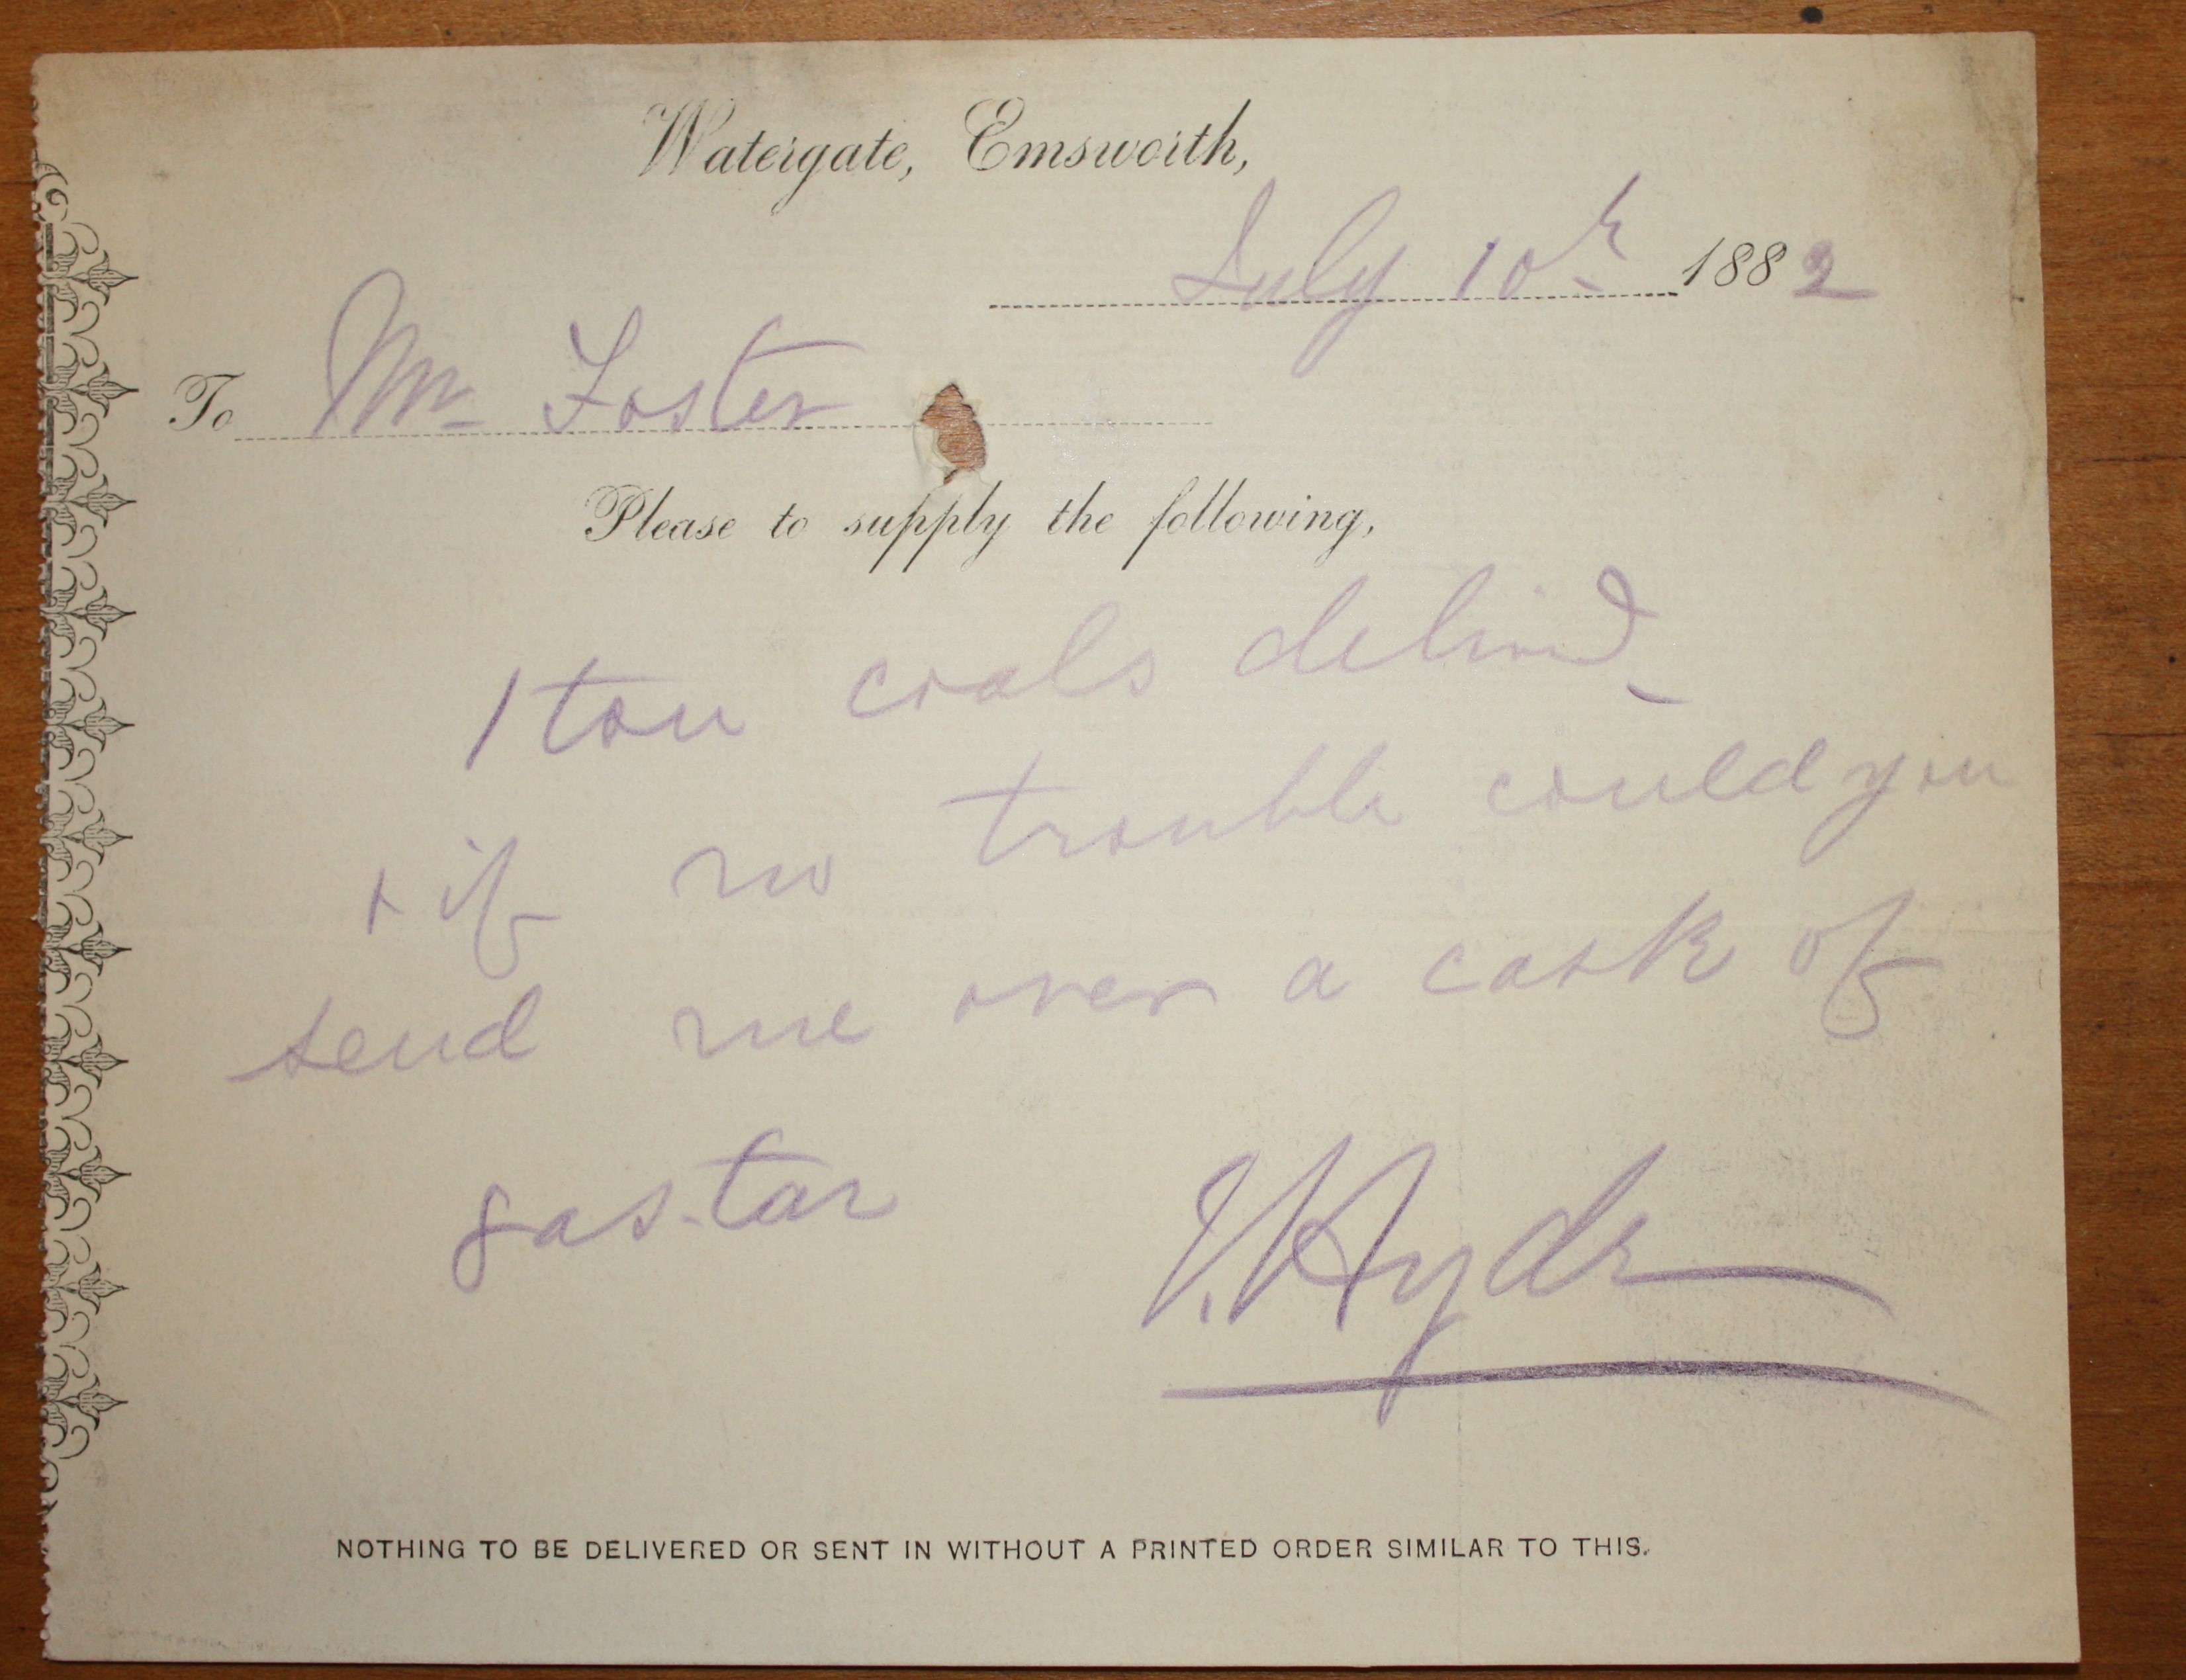 Watergate, Emsworth,
July 10th 1882
To Mr Foster
Please to supply the following,
1 ton coals delivd
+ if no trouble could you
send me over a cask of
gas-tar
J. Hyde
NOTHING TO BE DELIVERED OR SENT IN WITHOUT A PRINTED ORDER SIMILAR TO THIS.